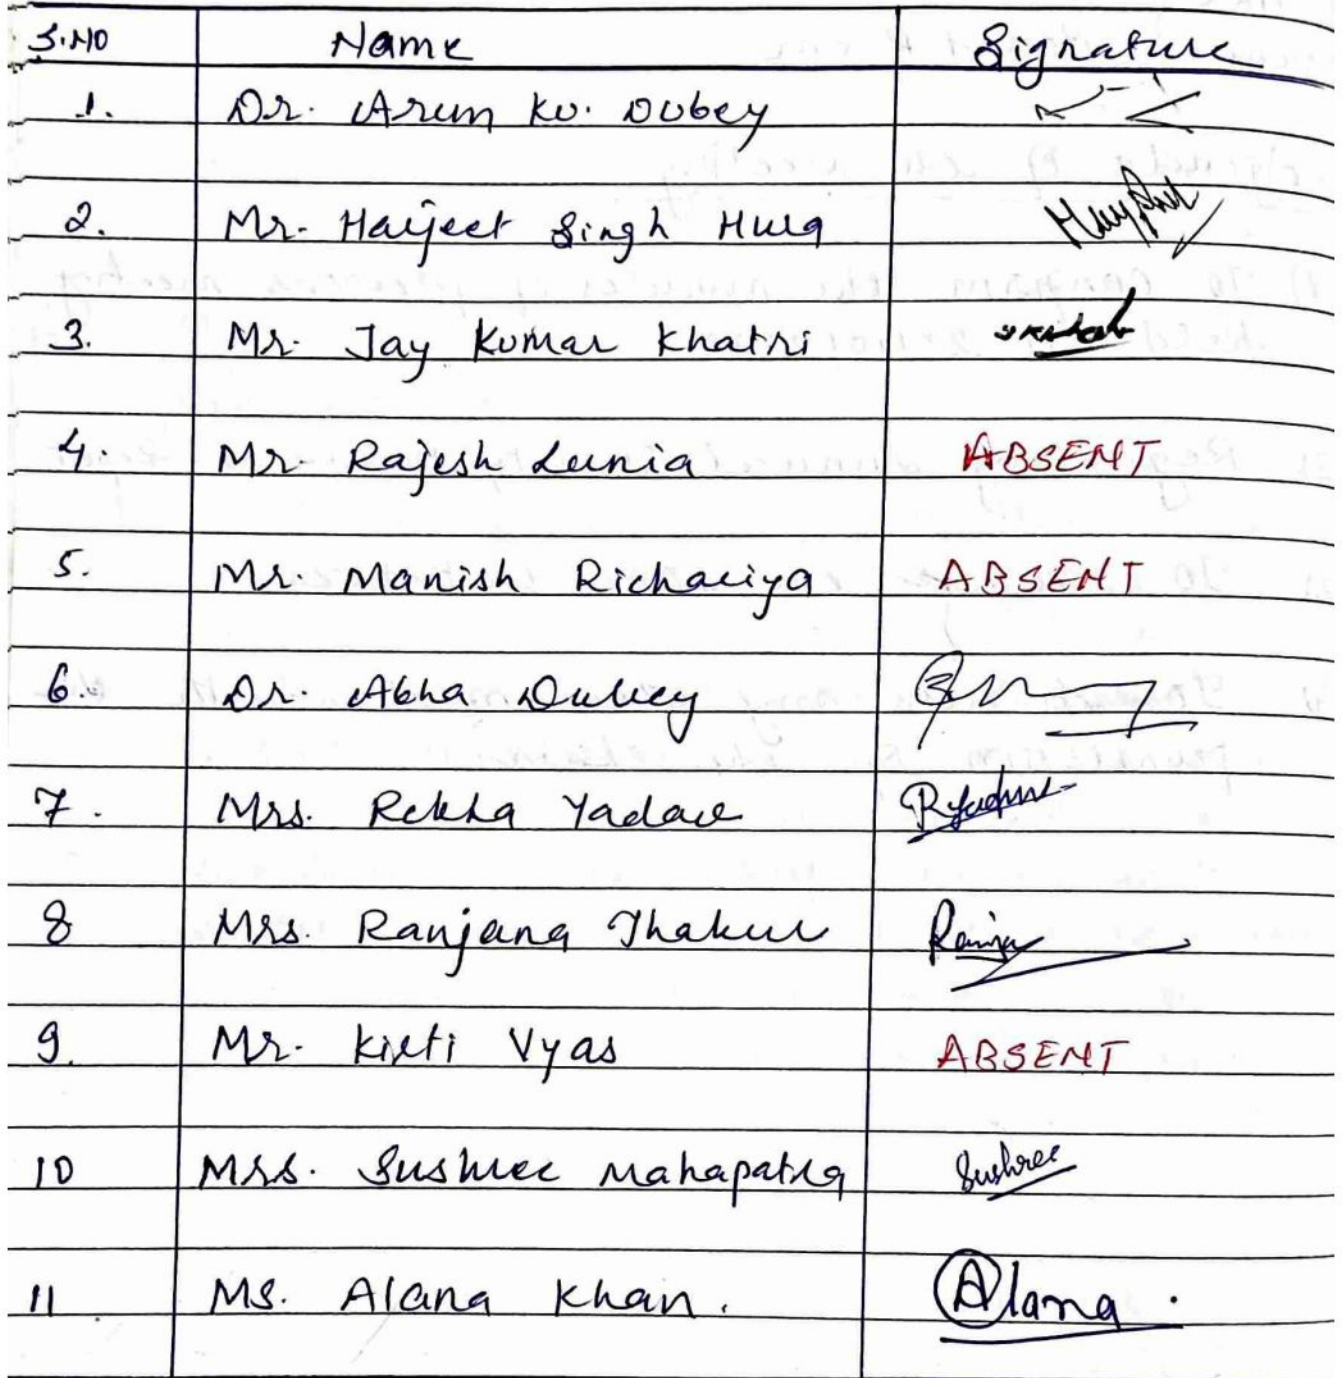 S.NO Name Signature
1. Dr. Arun Ku. Dubey
2. Mr. Harjeet Singh Hura
3. Mr. Jay Kumar Khatri
4. Mr. Rajesh Lunia ABSENT
5. Mr. Manish Richariya ABSENT
6. Dr. Abha Dubey
7. Mrs. Rekha Yadav RYadav
8 Mrs. Ranjana Thakur
9. Mr. Kirti Vyas ABSENT
10 Mrs. Sushree Mahapatra Sushree
11 Ms. Alana Khan. Alana.